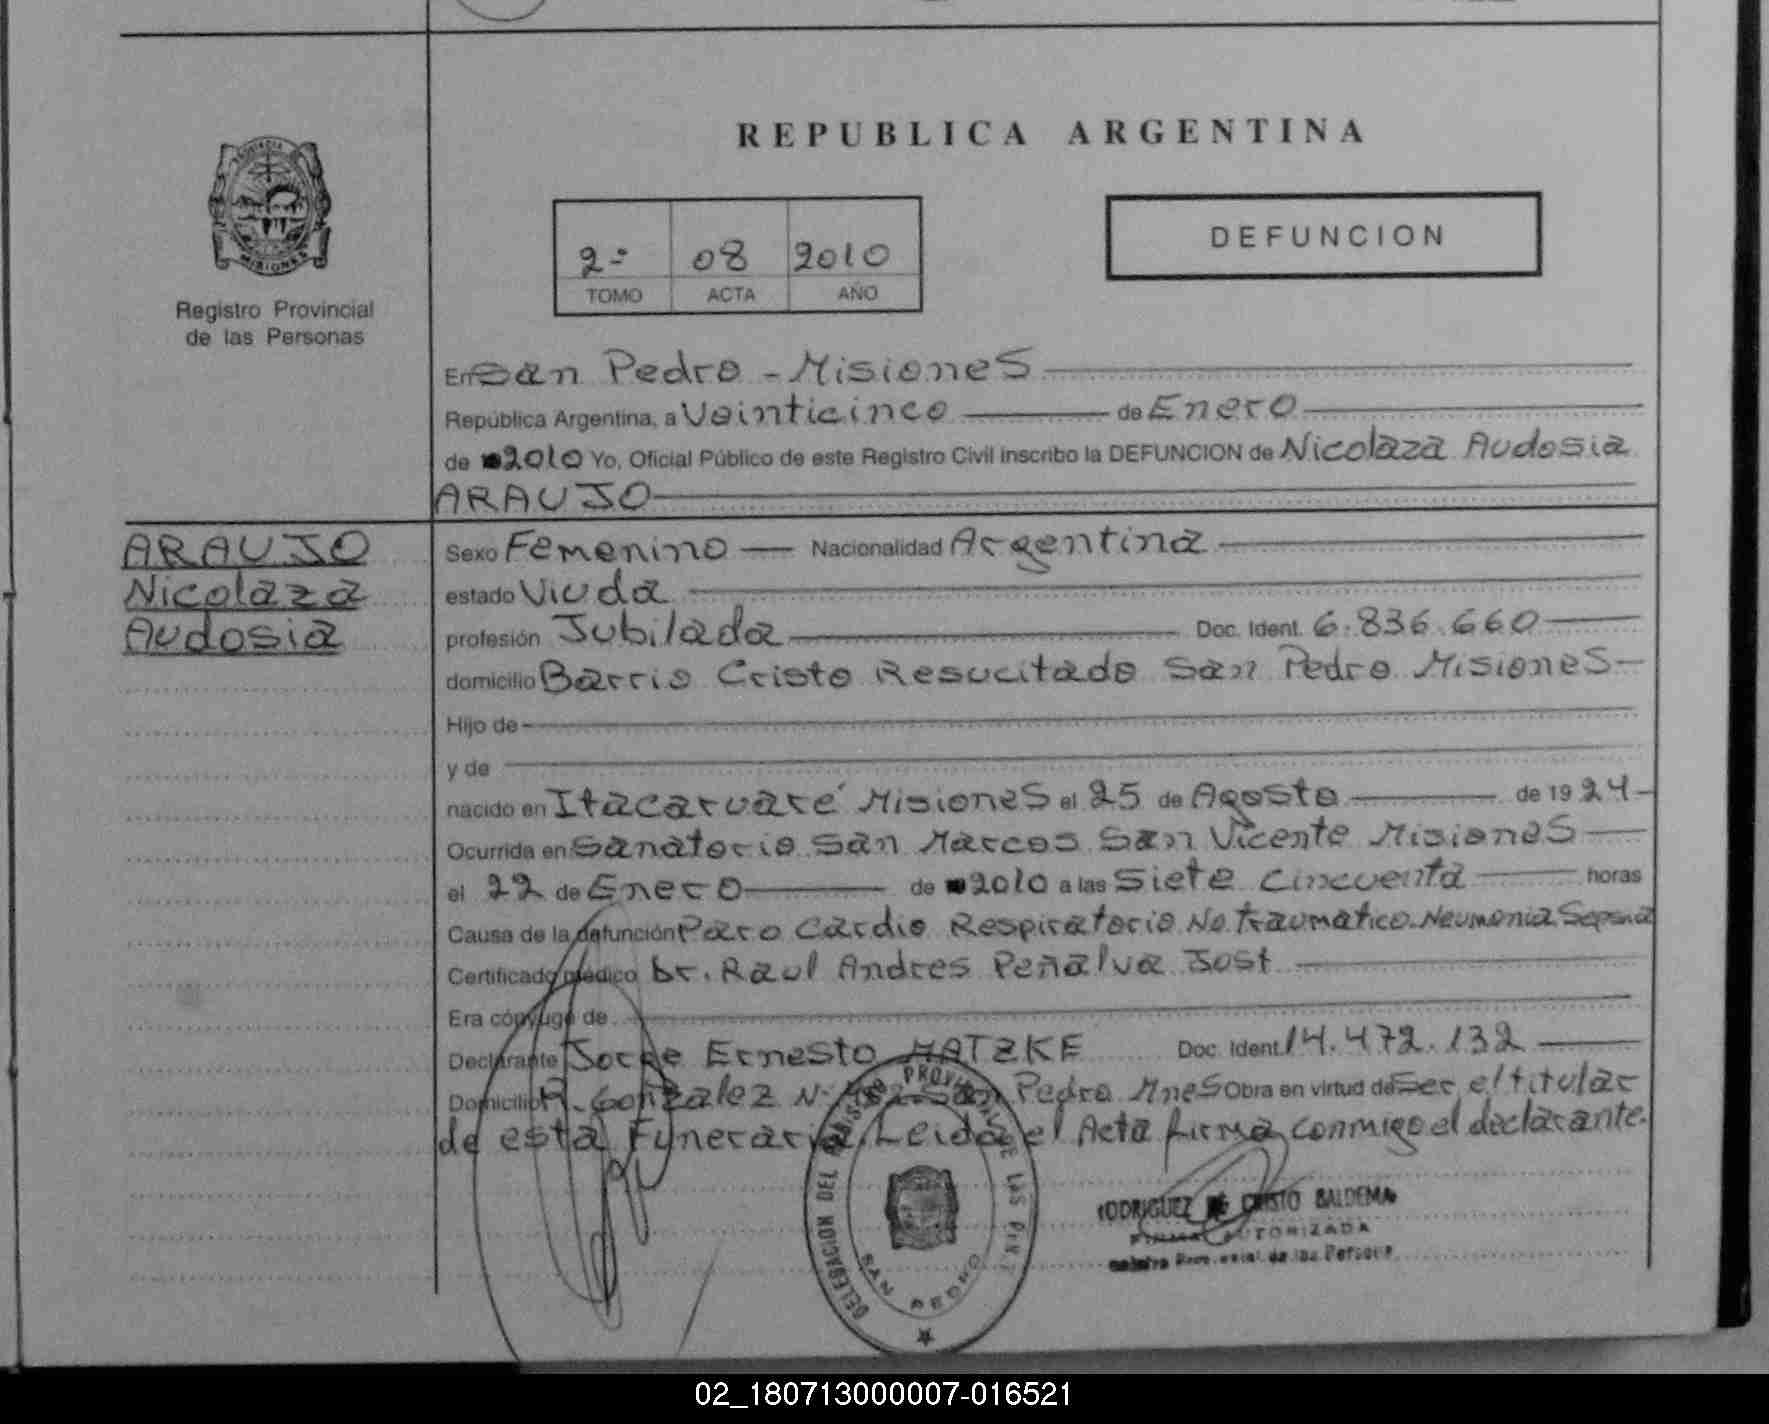 REPUBLICA ARGENTINA
PROVINCIA
MISIONES
Registro Provincial
de las Personas
2º 08 2010
TOMO ACTA AÑO
DEFUNCION
En San Pedro - Misiones
República Argentina, a Veinticinco de Enero
de 2010 Yo, Oficial Público de este Registro Civil inscribo la DEFUNCION de Nicolaza Audosia
ARAUJO
ARAUJO
Nicolaza
Audosia
Sexo Femenino Nacionalidad Argentina
estado Viuda
profesión Jubilada Doc. Ident. 6.836.660
domicilio Barrio Cristo Resucitado San Pedro Misiones
Hijo de
y de
nacido en Itacaruaré Misiones el 25 de Agosto de 1924
Ocurrida en Sanatorio San Marcos San Vicente Misiones
el 22 de Enero de 2010 a las Siete Cincuenta horas
Causa de la defunción Paro Cardio Respiratorio No traumático. Neumonia
Certificado médico Dr. Raul Andres Peñalva Jost
Era cónyuge de
Declarante Jorge Ernesto MATZKE Doc. Ident. 14.472.132
Domicilio R. Gonzalez Nº San Pedro Mnes Obra en virtud de Ser el titular
de esta Funeraria. Leida el Acta firma conmigo el declarante.
DELEGACION DEL REGISTRO PROVINCIAL DE LAS PER
SAN PEDRO
RODRIGUEZ DE CRISTO BALDEMA
FIRMA AUTORIZADA
Registro Provincial de las Personas
02_180713000007-016521